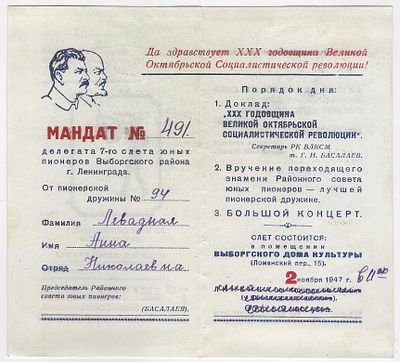 Да здравствует XXX годовщина Великой
Октябрьской Социалистической революции!
МАНДАТ № 491
делегата 7-го слета юных
пионеров Выборгского района
г. Ленинграда.
От пионерской
дружины № 94
Фамилия Левадная
Имя Анна
Отряд Николаевна
Председатель Районного
совета юных пионеров:
(БАСАЛАЕВ).
Порядок дня:
1. Доклад:
„XXX ГОДОВЩИНА
ВЕЛИКОЙ ОКТЯБРЬСКОЙ
СОЦИАЛИСТИЧЕСКОЙ РЕВОЛЮЦИИ“.
Секретарь РК ВЛКСМ
т. Г. И. БАСАЛАЕВ.
2. Вручение переходящего
знамени Районного совета
юных пионеров — лучшей
пионерской дружине.
3. БОЛЬШОЙ КОНЦЕРТ.
СЛЕТ СОСТОИТСЯ:
в помещении
ВЫБОРГСКОГО ДОМА КУЛЬТУРЫ
(Ломанский пер., 15).
2 ноября 1947 г. в 11 00